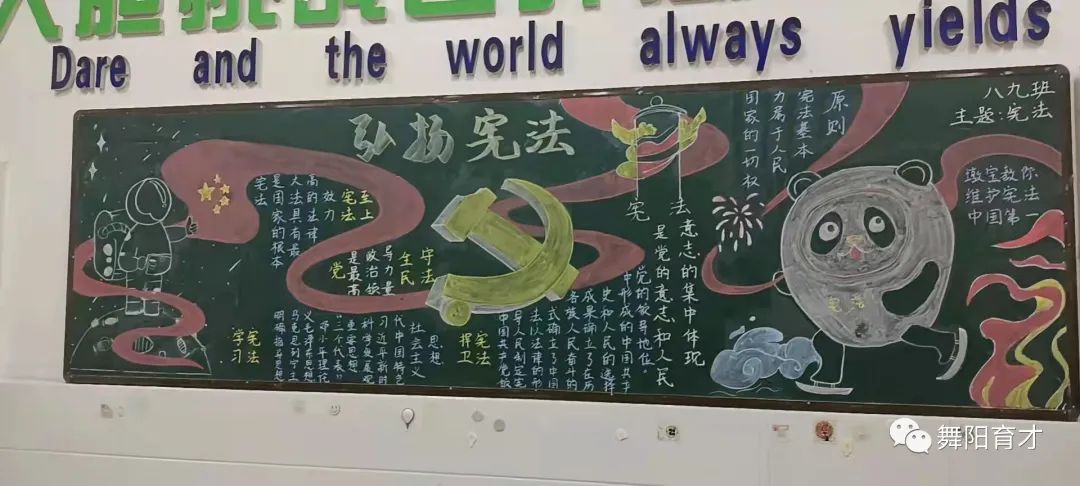 Dare and the world always yields
弘扬宪法
八九班
主题:宪法
宪法
是国家的根本
大法具有最
高的法律
效力
宪法
至上
党
是最高
政治领
导力量
全民
守法
学习
宪法
明确指导思想
马克思列宁主
义毛泽东思想
邓小平理论
"三个代表"
重要思想、
科学发展观
习近平新时
代中国特色
社会主义
思想
捍卫
宪法
中国共产党领
导人民制定宪
法以法律的形
式确立了中国
各族人民奋斗的
成果确立了在历
史和人民的选择
中形成的中国共产
党的领导地位。
宪法
是党的意志和人民
意志的集中体现
国家的一切权
力属于人民
宪法基本
原则
墩宝教你
维护宪法
中国第一
舞阳育才